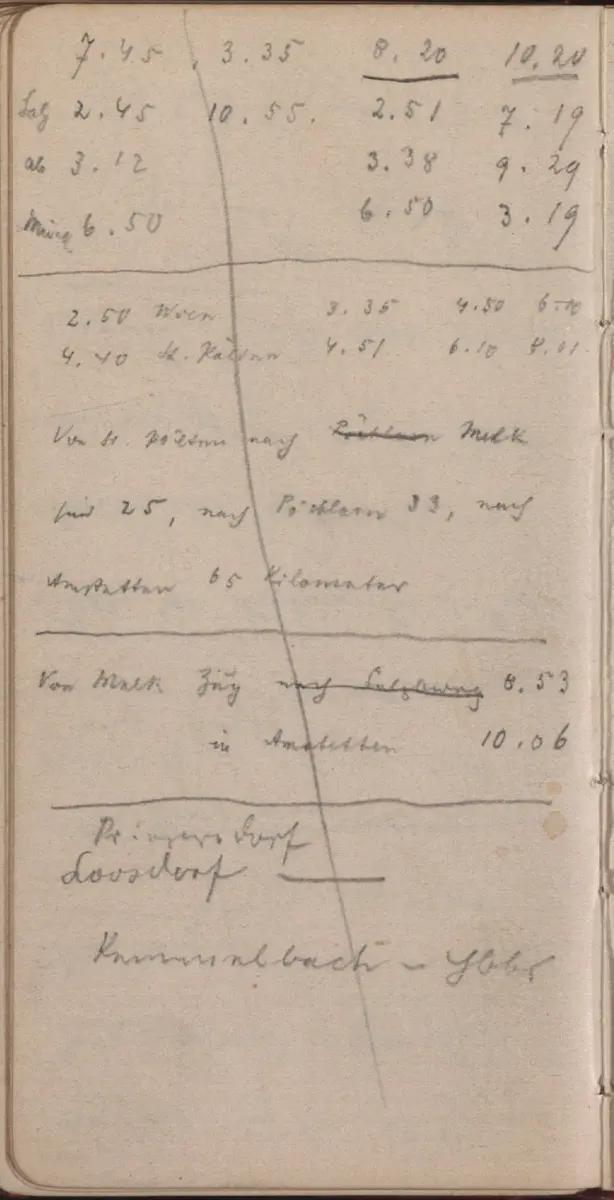 7.45 3.35 8.20 10.20
Salz 2.45 10.55. 2.51 7.19
ab 3.12 3.38 9.29
6.50 6.50 3.19
2.50 Wien 3.35 4.50 6.10
4.40 St. Pölten 4.51 6.10 8.01
Von St. Pölten nach Pöchlarn Melk
sind 25, nach Pöchlarn 33, nach
Amstetten 65 Kilometer
Von Melk Zug nach Salzburg 8.53
in Amstetten 10.06
Prinzersdorf
Loosdorf
Kemmelbach - Ybbs